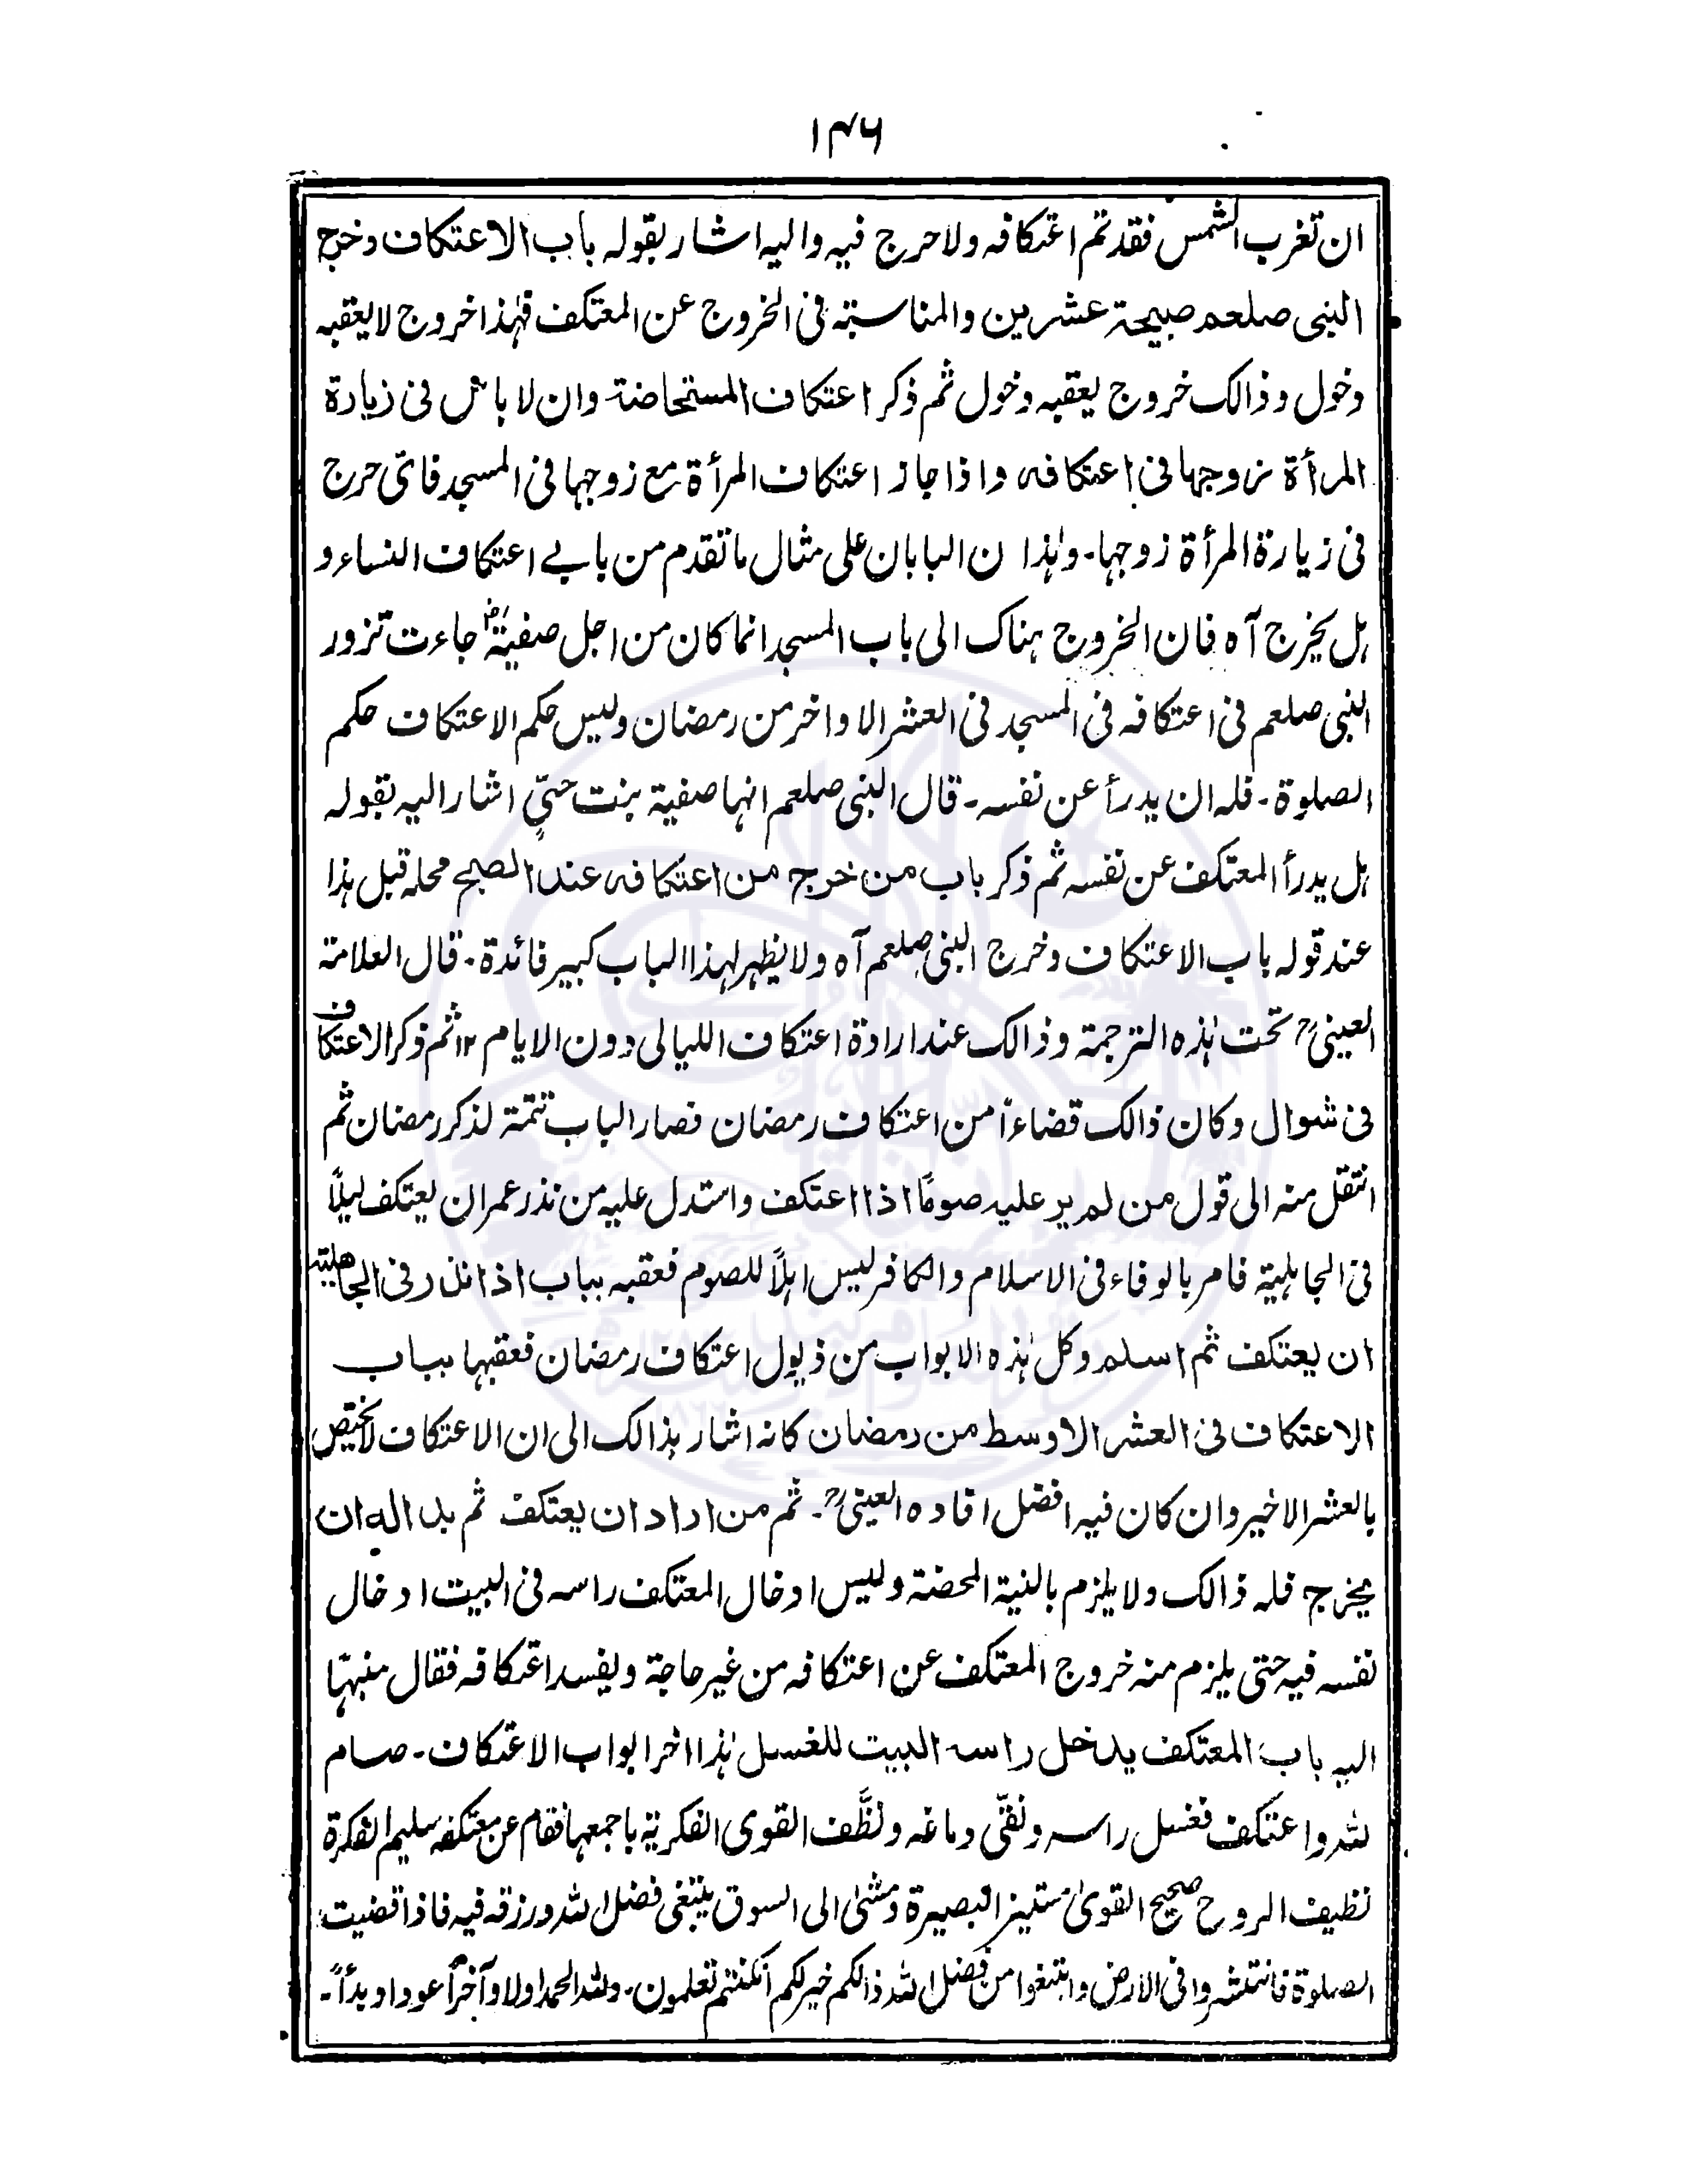 ۱۴۶
ان تغرب الشمس فقد تم اعتكافه ولاحرج فيه واليه اشار بقوله باب الاعتكاف وخرج
النبى صلعم صبيحة عشرين والمناسبة فى الخروج عن المعتكف فهٰذا خروج لا يعقبه
دخول وذالك خروج يعقبه دخول ثم ذكر اعتكاف المستحاضة وان لا باس فى زيارة
المرأة زوجها فى اعتكافه واذا جاز اعتكاف المرأة مع زوجها فى المسجد فاىّ حرج
فى زيارة المرأة زوجها۔ وهٰذا ن البابان على مثال ما تقدم من بابے اعتكاف النساء و
هل يخرج آه فان الخروج هناك الى باب المسجد انما كان من اجل صفيةؓ جاءت تزور
النبى صلعم فى اعتكافه فى المسجد فى العشر الاواخر من رمضان وليس حكم الاعتكاف حكم
الصلوة۔ فله ان يدرأ عن نفسه۔ قال النبى صلعم انها صفية بنت حيىٍّ اشار اليه بقوله
هل يدرأ المعتكف عن نفسه ثم ذكر باب من خرج من اعتكافه عند الصبح محله قبل هذا
عند قوله باب الاعتكاف وخرج النبى صلعم آه ولا يظهر لهذا الباب كبير فائدة۔ قال العلامة
العينىؒ تحت هٰذه الترجمة وذالك عند ارادة اعتكاف الليالى دون الايام ۱۲ ثم ذكر الاعتكاف
فى شوال وكان ذالك قضاءاً من اعتكاف رمضان فصار الباب تتمة لذكر رمضان ثم
انتقل منه الى قول من لم ير عليه صومًا اذا اعتكف واستدل عليه من نذر عمر ان يعتكف ليلًا
فى الجاهلية فامر بالوفاء فى الاسلام والكافر ليس اهلًا للصوم فعقبه بباب اذا نذر فى الجاهلية
ان يعتكف ثم اسلم وكل هٰذه الابواب من ذيول اعتكاف رمضان فعقبها بباب
الاعتكاف فى العشر الاوسط من رمضان كانه اشار بذالك الى ان الاعتكاف لا يختص
بالعشر الاخير وان كان فيه افضل افاده العينىؒ۔ ثم من اراد ان يعتكف ثم بدا له ان
يخرج فله ذالك ولا يلزم بالنية المحضة وليس ادخال المعتكف راسه فى البيت ادخال
نفسه فيه حتى يلزم منه خروج المعتكف عن اعتكافه من غير حاجة ويفسد اعتكافه فقال منبهًا
اليه باب المعتكف يدخل راسه البيت للغسل هٰذا اخر ابواب الاعتكاف۔ صام
لله واعتكف فغسل راسه ونقّى دماغه ونظَّف القوى الفكرية باجمعها فقام عن معتكفه سليم الفكرة
نظيف الروح صحيح القوىٰ مستنير البصيرة ومشىٰ الى السوق يبتغى فضل الله ورزقه فيه فاذا قضيت
الصلوة فانتشروا فى الارض وابتغوا من فضل الله ذالكم خير لكم ان كنتم تعلمون۔ ولله الحمد اولا وآخراً عودا وبدأً۔